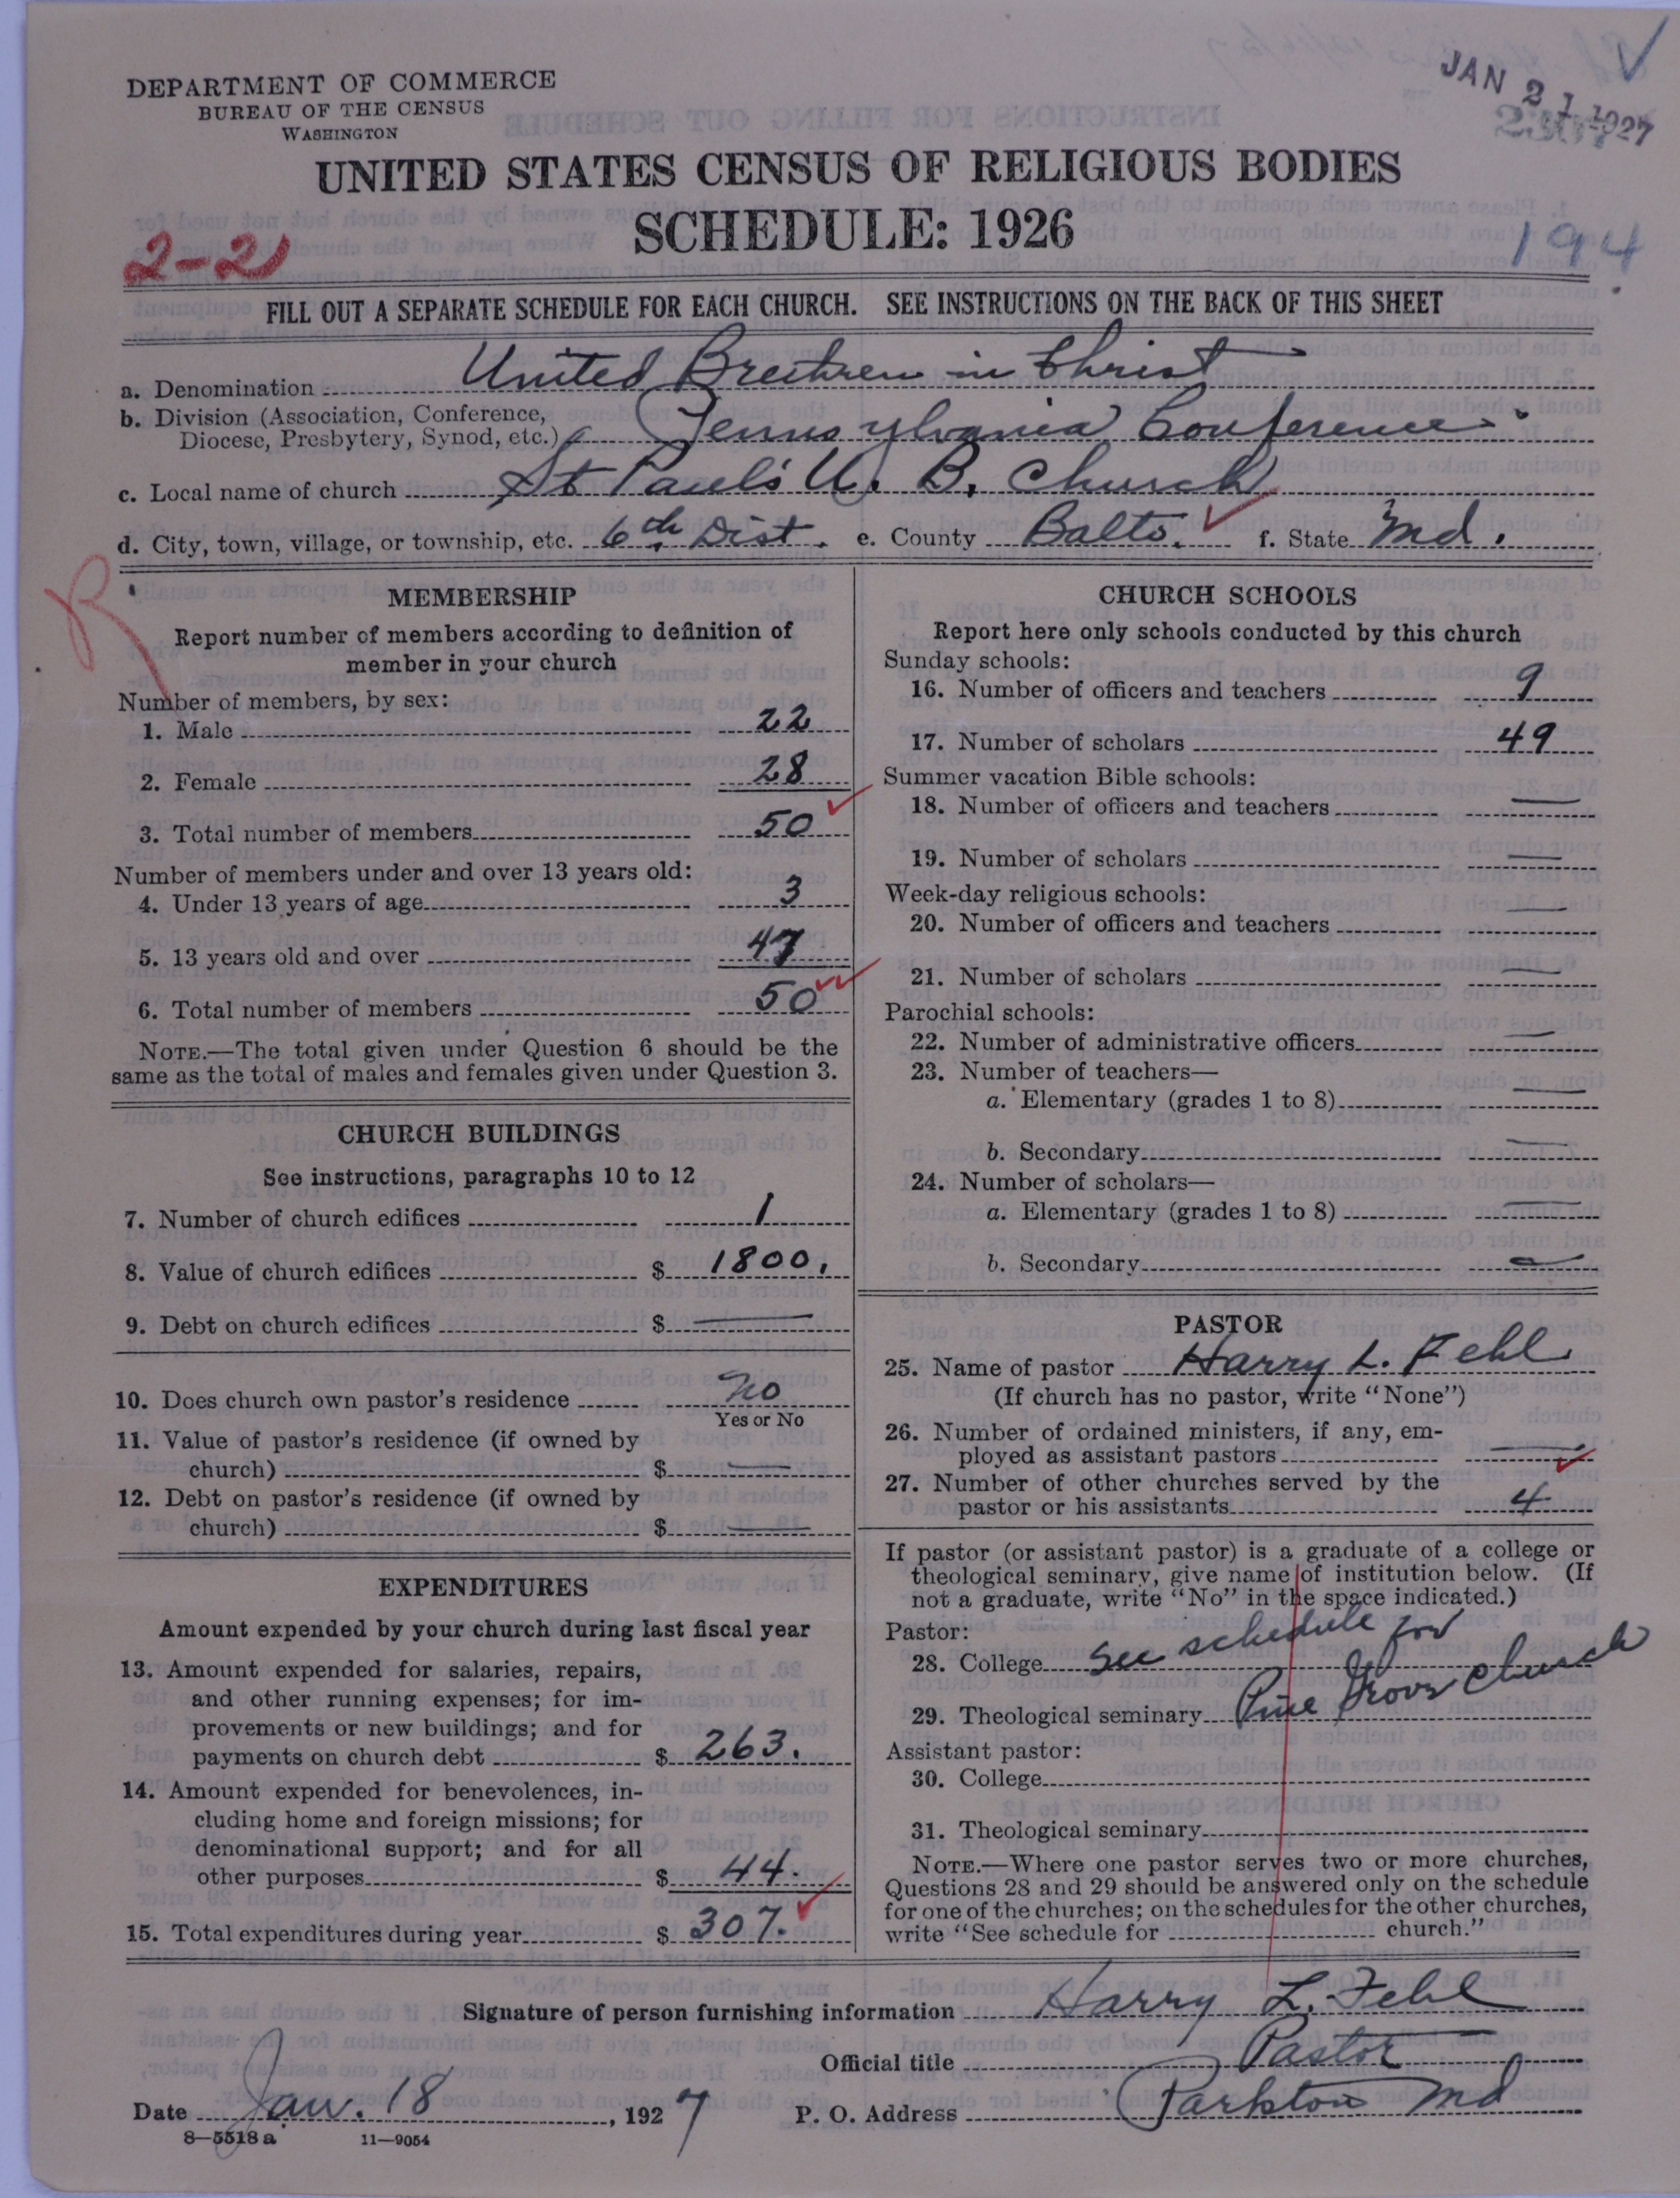 DEPARTMENT OF COMMERCE
BUREAU OF THE CENSUS
WASHINGTON
JAN 21 1927
UNITED STATES CENSUS OF RELIGIOUS BODIES
SCHEDULE: 1926
2-21
194
FILL OUT A SEPARATE SCHEDULE FOR EACH CHURCH. SEE INSTRUCTIONS ON THE BACK OF THIS SHEET
a. Denomination United Brethren in Christ
b. Division (Association, Conference,
Diocese, Presbytery, Synod, etc.) Pennsylvania Conference
c. Local name of church St Paul's U. B. Church
d. City, town, village, or township, etc. 6th Dist. e. County Balto. f. State Md.
R
MEMBERSHIP
Report number of members according to definition of
member in your church
Number of members, by sex:
1. Male 22
2. Female 28
3. Total number of members 50
Number of members under and over 13 years old:
4. Under 13 years of age 3
5. 13 years old and over 47
6. Total number of members 50
NOTE.—The total given under Question 6 should be the
same as the total of males and females given under Question 3.
CHURCH BUILDINGS
See instructions, paragraphs 10 to 12
7. Number of church edifices 1
8. Value of church edifices $ 1800.
9. Debt on church edifices $ —
10. Does church own pastor's residence No
Yes or No
11. Value of pastor's residence (if owned by
church) $ —
12. Debt on pastor's residence (if owned by
church) $ —
EXPENDITURES
Amount expended by your church during last fiscal year
13. Amount expended for salaries, repairs,
and other running expenses; for im-
provements or new buildings; and for
payments on church debt $ 263.
14. Amount expended for benevolences, in-
cluding home and foreign missions; for
denominational support; and for all
other purposes $ 44.
15. Total expenditures during year $ 307.
CHURCH SCHOOLS
Report here only schools conducted by this church
Sunday schools:
16. Number of officers and teachers 9
17. Number of scholars 49
Summer vacation Bible schools:
18. Number of officers and teachers —
19. Number of scholars —
Week-day religious schools:
20. Number of officers and teachers —
21. Number of scholars —
Parochial schools:
22. Number of administrative officers —
23. Number of teachers—
a. Elementary (grades 1 to 8) —
b. Secondary —
24. Number of scholars—
a. Elementary (grades 1 to 8) —
b. Secondary —
PASTOR
25. Name of pastor Harry L. Fehl
(If church has no pastor, write "None")
26. Number of ordained ministers, if any, em-
ployed as assistant pastors —
27. Number of other churches served by the
pastor or his assistants 4
If pastor (or assistant pastor) is a graduate of a college or
theological seminary, give name of institution below. (If
not a graduate, write "No" in the space indicated.)
Pastor:
28. College See schedule for
29. Theological seminary Pine Grove Church
Assistant pastor:
30. College
31. Theological seminary
NOTE.—Where one pastor serves two or more churches,
Questions 28 and 29 should be answered only on the schedule
for one of the churches; on the schedules for the other churches,
write "See schedule for church."
Signature of person furnishing information Harry L. Fehl
Official title Pastor
Date Jan. 18, 1927 P. O. Address Parkton Md
8—5518 a 11—9054